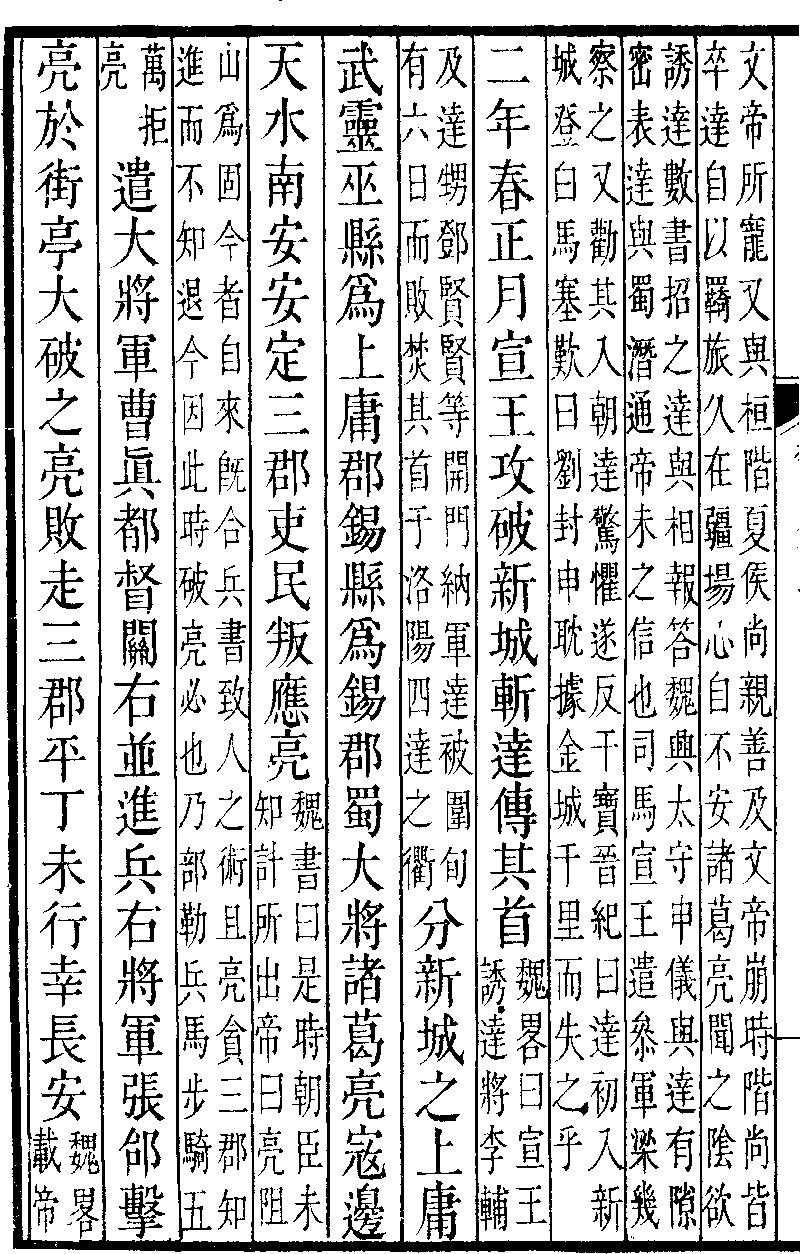 文帝所寵又與桓階夏侯尚親善及文帝崩時階尚皆
卒達自以羇旅久在疆場心自不安諸葛亮聞之陰欲
誘達數書招之達與相報答魏興太守申儀與達有隙
密表達與蜀潛通帝未之信也司馬宣王遣叅軍梁幾
察之又勸其入朝達驚懼遂反干寶晉紀曰達初入新
城登白馬塞歎曰劉封申耽據金城千里而失之乎
二年春正月宣王攻破新城斬達傳其首
魏畧曰宣王
誘達將李輔
及達甥鄧賢賢等開門納軍達被圍旬
有六日而敗焚其首于洛陽四達之衢
分新城之上庸
武靈巫縣爲上庸郡錫縣爲錫郡蜀大將諸葛亮寇邊
天水南安安定三郡吏民叛應亮
魏書曰是時朝臣未
知計所出帝曰亮阻
山爲固今者自來旣合兵書致人之術且亮貪三郡知
進而不知退今因此時破亮必也乃部勒兵馬步騎五
萬拒
亮
遣大將軍曹眞都督關右並進兵右將軍張郃擊
亮於街亭大破之亮敗走三郡平丁未行幸長安
魏畧
載帝